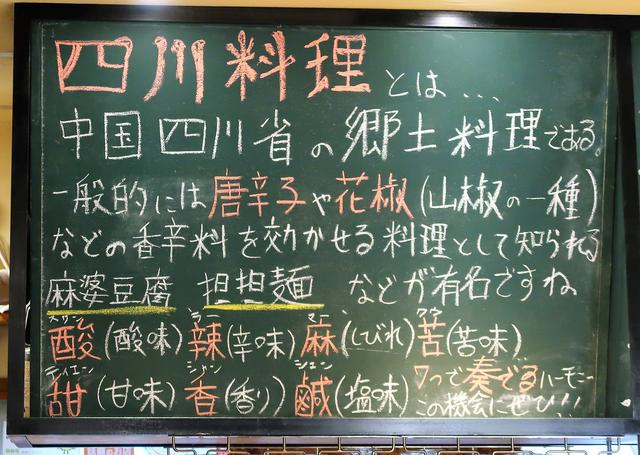 四川料理とは...
中国四川省の郷土料理である。
一般的には唐辛子や花椒(山椒の一種)
などの香辛料を効かせる料理として知られる
麻婆豆腐 担担麺 などが有名ですね
酸(酸味) 辣(辛味) 麻(しびれ) 苦(苦味)
甜(甘味) 香(香り) 鹹(塩味) 7つで奏でるハーモニー
この機会にぜひ!!!